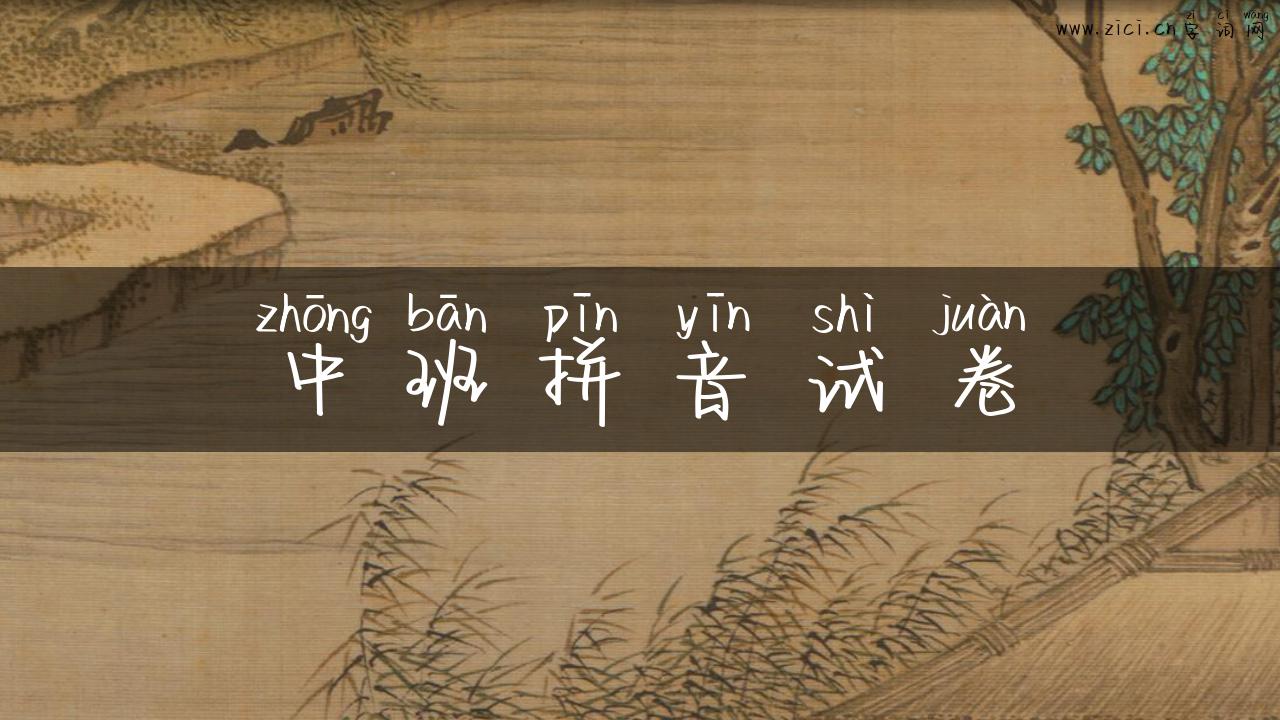 zì cí wǎng
www.zici.cn字词网
zhōng bān pīn yīn shì juàn
中班拼音试卷